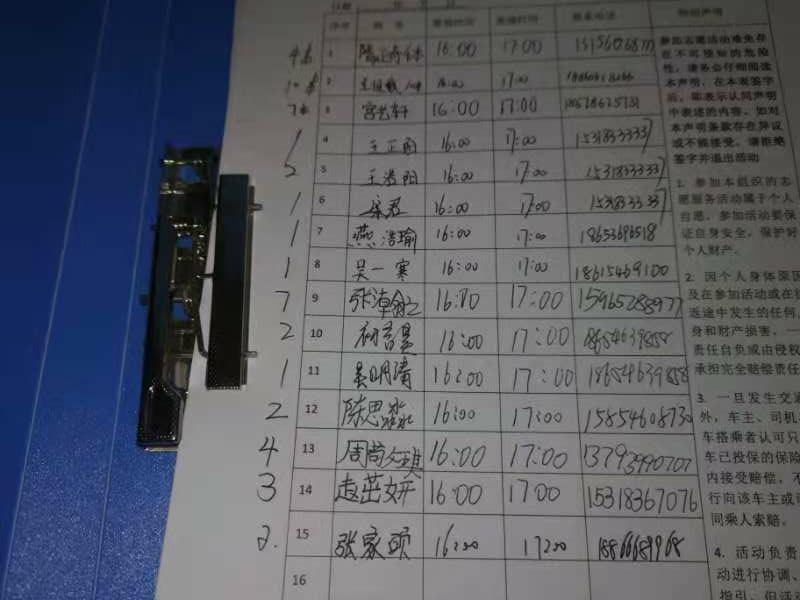 序号
4本 1 16:00 17:00
10本 2 16:00 17:00
7本 3 宫艺轩 16:00 17:00
1 4 王正雨 16:00 17:00 15318333337
2 5 王浩阳 16:00 17:00 15318333337
1 6 宗君 16:00 17:00 15318333337
1 7 燕浩瑜 16:00 17:00 18653696518
1 8 吴一寒 16:00 17:00 18615469100
7 9 16:00 17:00 15965288977
2 10 16:00 17:00
1 11 吴明清 16:00 17:00 18654639858
2 12 陈思淼 16:00 17:00 15854608730
4 13 周芮琪 16:00 17:00 13793990707
3 14 赵芷妍 16:00 17:00 15318367076
2. 15 张家硕 16:00 17:00
16
参加志愿活动难免存
在不可预知的危险
性，请务必仔细阅读
本声明，在本表签字
后，即表示认同声明
中表述的内容，如对
本声明条款存在异议
或不能接受，请拒绝
签字并退出活动
1. 参加本组织的志
愿服务活动属于个人
自愿，参加活动要保
证自身安全，保护好
个人财产。
2. 因个人身体原因
及在参加活动或在往
返途中发生的任何人
身和财产损害，一
责任自负或由侵权
承担完全赔偿责任
3. 一旦发生交通
外，车主、司机
车搭乘者认可只
车已投保的保险
内接受赔偿，不
行向该车主或
同乘人索赔。
4. 活动负责
动进行协调、
指引，但活动